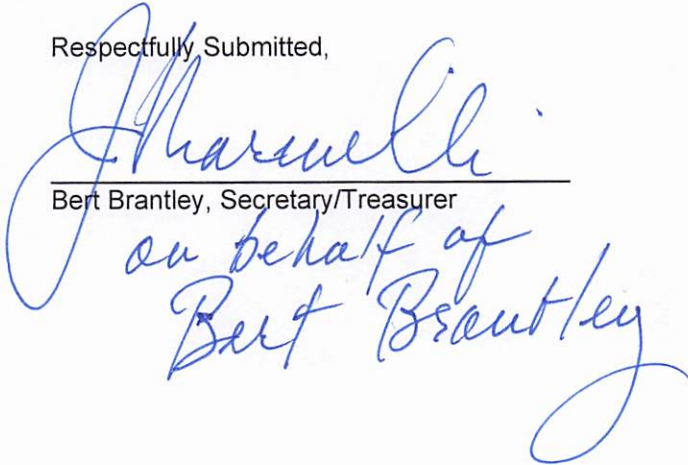 Respectfully Submitted,
Bert Brantley, Secretary/Treasurer
on behalf of
Bert Brantley